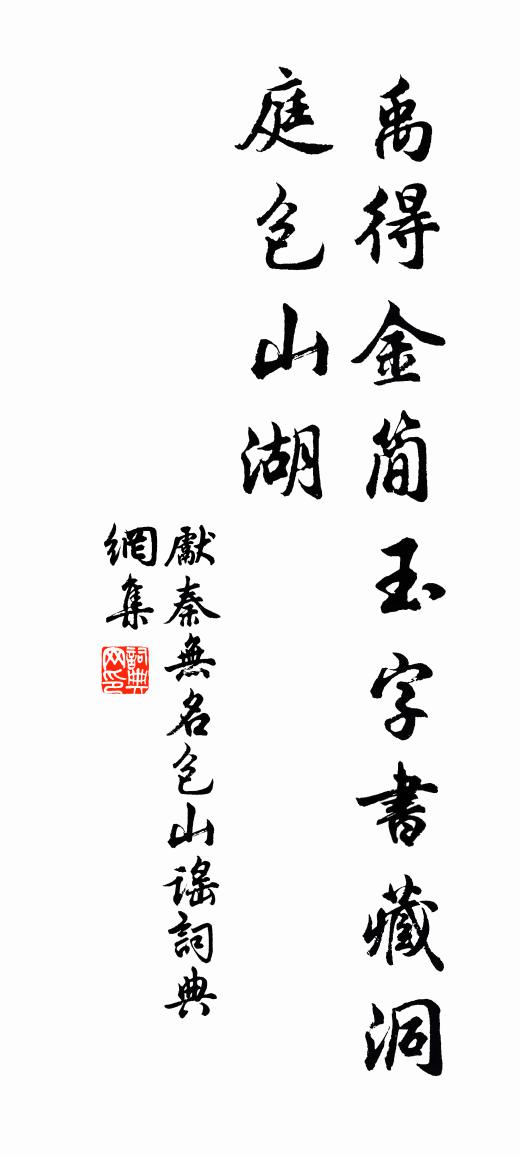 禹得金簡玉字書藏洞
庭包山湖
獻秦無名包山謠詞典
網集
詞典网印